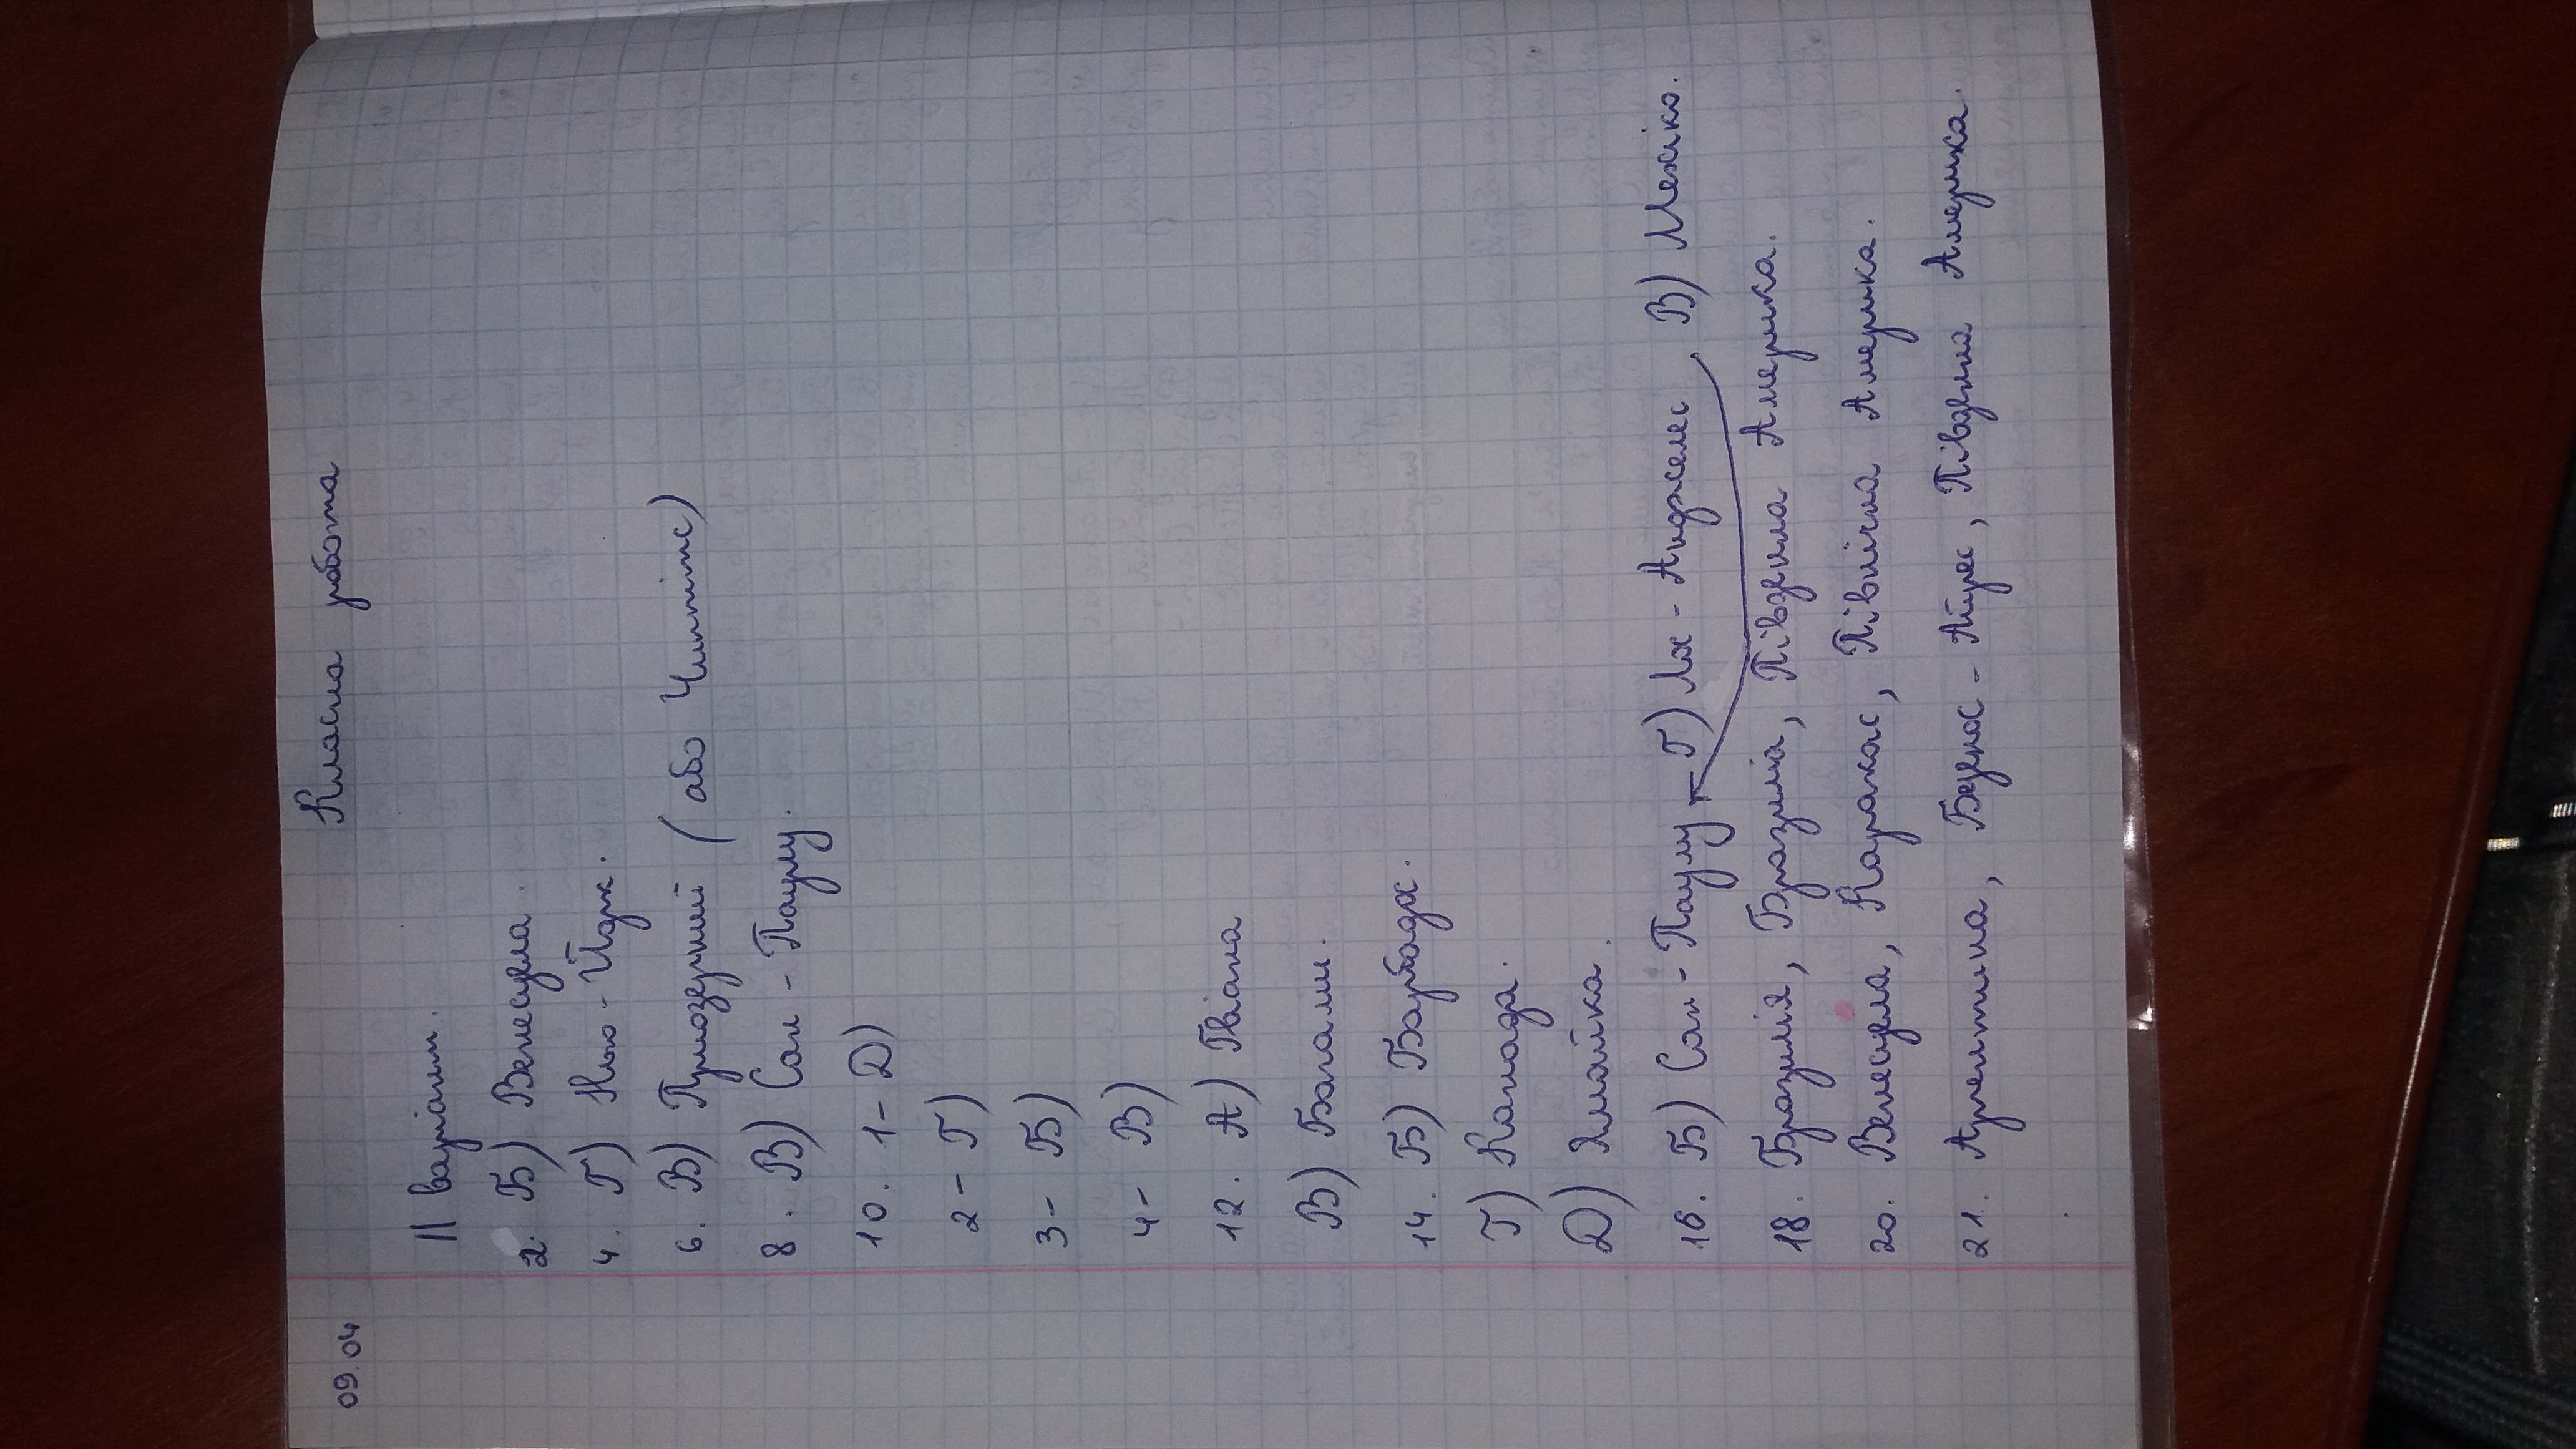 09.04
Класна робота
II варіант.
2. Б) Венесуела.
4. Г) Нью-Йорк.
6. В) Приозерний (або Чиппітс)
8. В) Сан-Паулу.
10. 1-Д)
2-Г)
3-Б)
4-В)
12. А) Гвіана
В) Багами.
14. Б) Барбадос.
Г) Канада.
Д) Ямайка.
16. Б) Сан-Паулу Г) Лос-Анджелес В) Мехіко.
18. Бразилія, Бразиліа, Південна Америка.
20. Венесуела, Каракас, Північна Америка.
21. Аргентина, Буенос-Айрес, Південна Америка.